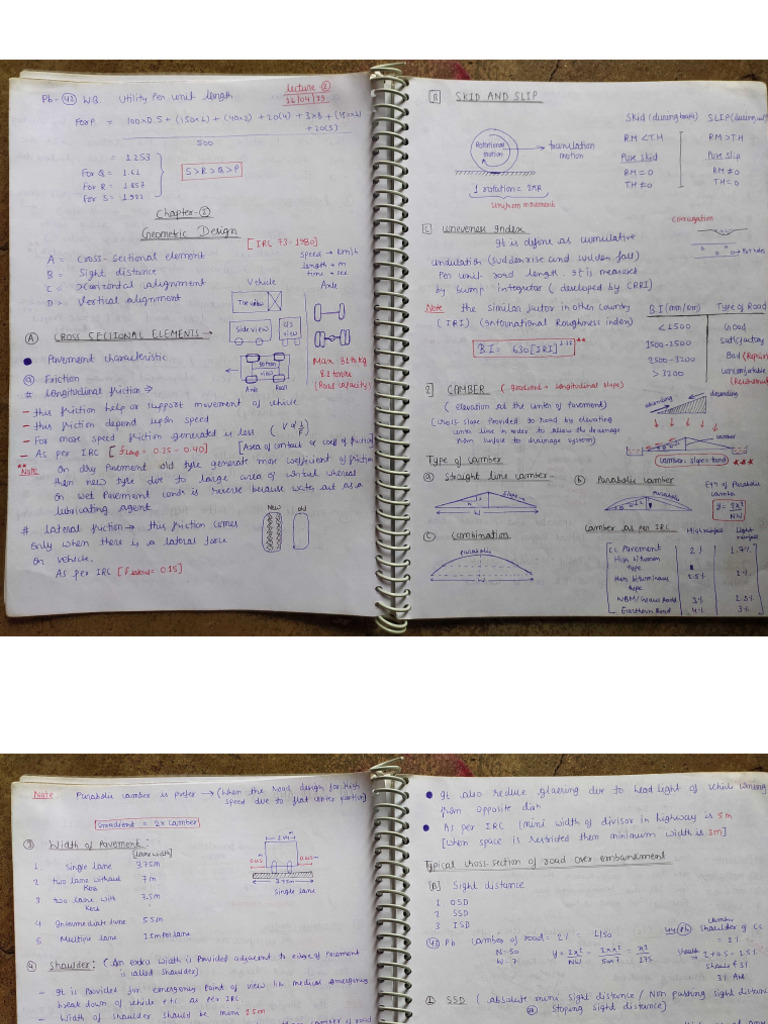 Pb-42 W.B. Utility Per unit length
lecture 2
26/04/23
For P = 100×0.5 + (150×2) + (40×2) + 20(4) + 3×8 + (150×2)
+20(5)
500
= 1.253
For Q = 1.61
For R = 1.857
For S = 1.922
S>R>Q>P
Chapter-2
Geometric Design
[IRC 73-1980]
A = Cross-Sectional element
B = Sight distance
C = Horizontal alignment
D = Vertical alignment
speed → km/h
length → m
time → sec
Vehicle
Axle
Top view
Side view
view
Bottom
view
Axle
Max
8.2 tonne
(Road capacity)
A CROSS SECTIONAL ELEMENTS →
Pavement characteristic
a Friction
# longitudinal friction →
- this friction help or support movement of vehicle
- this friction depend upon speed
- For more speed friction generated is less
- As Per IRC [flong = 0.35 - 0.40]
[Area of contact or coeff of friction]
**Note
On dry Pavement old tyre generate more coefficient of friction
then new tyre due to large area of contact whereas
on wet Pavement condn is reverse because water act as a
lubricating agent.
New
old
# lateral friction → this friction comes
only when there is a lateral force
on vehicle.
As per IRC [flateral = 0.15]
B SKID AND SLIP
Skid (during brake)
SLIP
RM < T.M
RM > T.M
Pure Skid
Pure Slip
RM = 0
RM ≠ 0
TM ≠ 0
TM = 0
Rotational
motion
translation
motion
1 rotation = 2πR
Uniform movement
C Uneveness Index
Corrugation
It is define as cumulative
undulation (sudden rise and sudden fall)
Per unit road length. It is measured
by bump integrator (developed by CRRI)
Note the similar factor in other country
(IRI) (International Roughness index)
B.I = 630[IRI]1.12 **
B.I (mm/km)
Type of Road
<1500
Good
1500-2500
Satisfactory
2500-3200
Bad (Repair)
> 3200
Uncomfortable
2 CAMBER (gradient → longitudinal slope)
(elevation at the center of Pavement)
(Cross slope Provided to road by elevating
center line in order to allow the drainage
from surface to drainage system)
ascending
descending
camber
(camber slope = tanθ) ***
Type of camber
a Straight line camber
b Parabolic camber
Eqn of Parabolic
camber
y = 2x²/NW
Slope
W
Parabolic
c Combination
Parabolic
Camber as per IRC
High rainfall
Light rainfall
CC Pavement
High bitumen
type
2%
1.7%
Thin bituminous
type
2.5%
2%
WBM/Gravel Road
3%
2.5%
Earthern Road
4%
3%
Note Parabolic camber is prefer → (When the road design for high
speed due to flat center portion)
Gradient = 2× camber
3 Width of Pavement:
(lane width)
1 Single lane 3.75m
2 two lane without
Kerb
7m
3 two lane with
Kerb
7.5m
4 Intermediate lane 5.5m
5 Multiple lane 3.5m per lane
3.75m
Single lane
4 Shoulder: (An extra width is Provided adjacent to edge of Pavement
is called Shoulder)
- It is Provided for emergency Point of view like medical emergency
break down of vehicle etc. as per IRC
- Width of shoulder should be mini 2.5m
It also reduce glaering due to head light of vehicle coming
from opposite dirn
As per IRC [mini width of divisor in highway is 5m
[when space is restricted then minimum width is 3m]
Typical cross-section of road over embankment
[B] Sight distance
1 OSD
2 SSD
3 ISD
42 Pb Camber of road = 2% = 1/50
N = 50
W = 7
y = 2x²/NW = 2×x²/50×7 = x²/175
44 Pb
camber
Shoulder of CC
= 2%
2+0.5 = 2.5%
Should ≮ 3%
3% Ans
1 SSD (absolute mini Sight distance / Non passing sight distance
or Stoping sight distance)